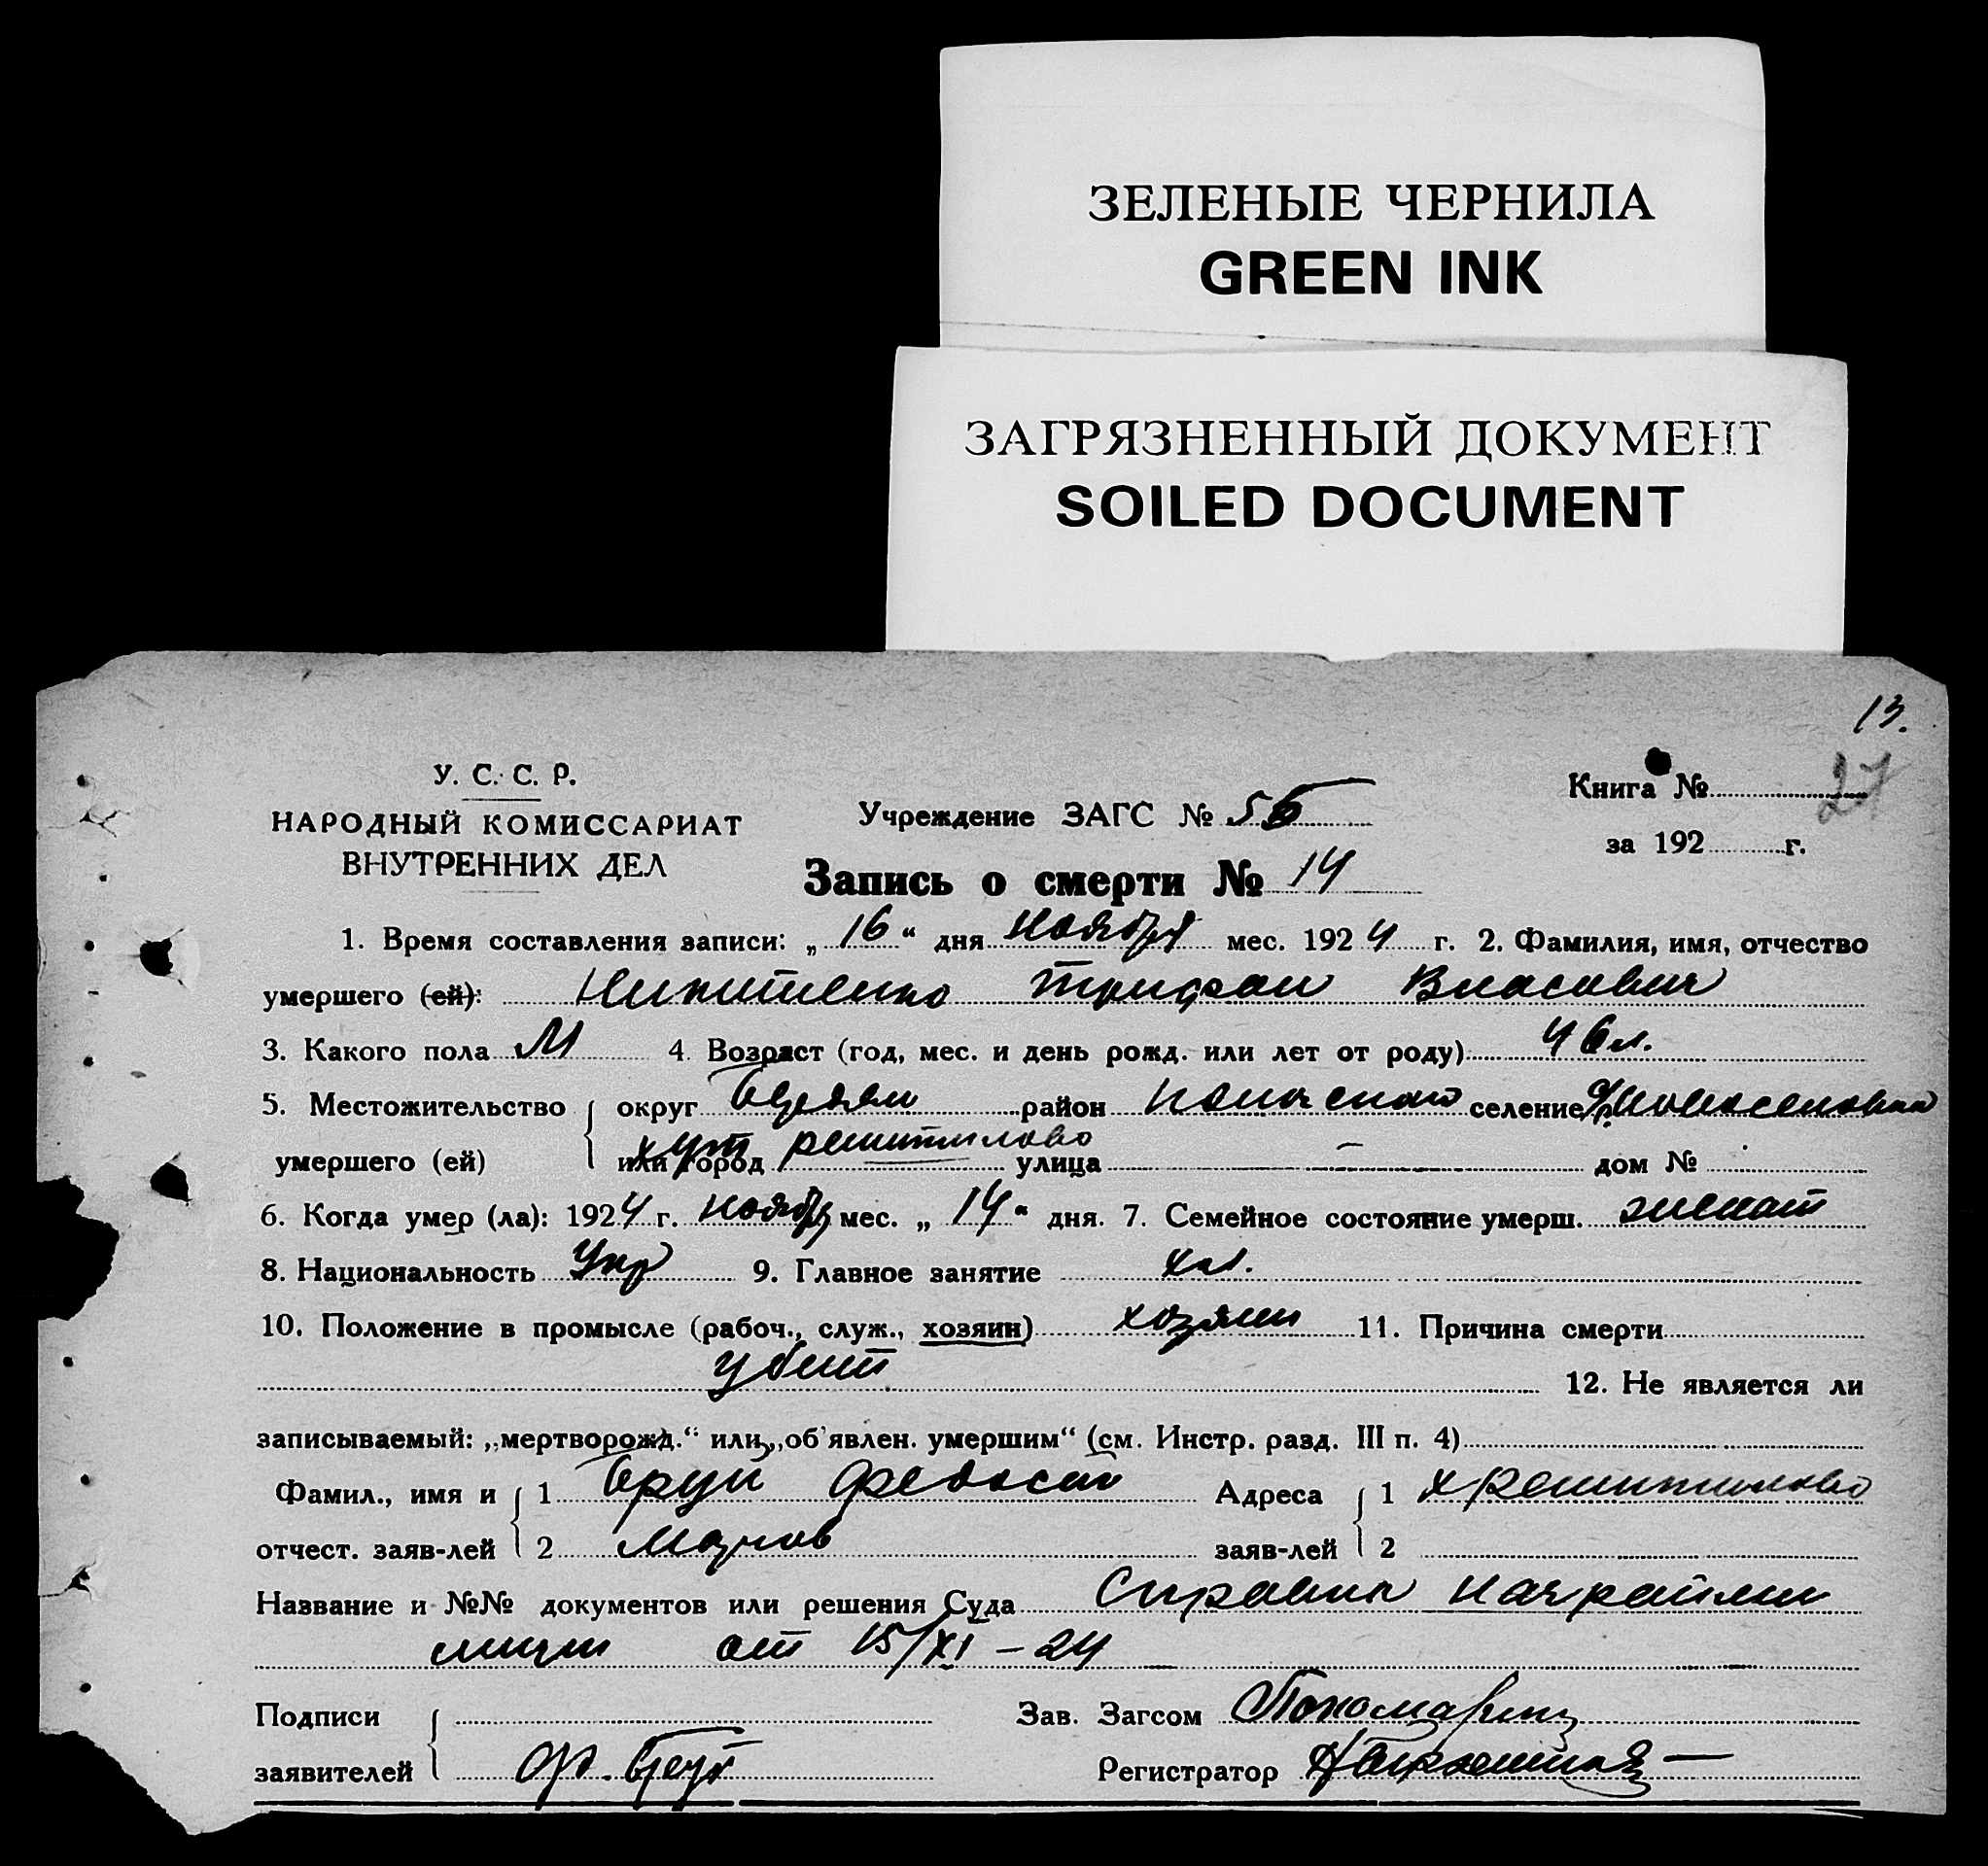 ЗЕЛЕНЫЕ ЧЕРНИЛА
GREEN INK
ЗАГРЯЗНЕННЫЙ ДОКУМЕНТ
SOILED DOCUMENT
13.
27
У. С. С. Р.
НАРОДНЫЙ КОМИССАРИАТ
ВНУТРЕННИХ ДЕЛ
Учреждение ЗАГС № 56
Книга №
за 192 г.
Запись о смерти № 14
1. Время составления записи: „16“ дня Ноября мес. 1924 г. 2. Фамилия, имя, отчество
умершего (ей): Никитенко Трифон Власович
3. Какого пола М 4. Возраст (год, мес. и день рожд. или лет от роду) 46 л.
5. Местожительство округ район селение
умершего (ей) или город хут улица — дом №
6. Когда умер (ла): 1924 г. Ноября мес. „14“ дня. 7. Семейное состояние умерш. женат
8. Национальность Укр 9. Главное занятие хл.
10. Положение в промысле (рабоч., служ., хозяин) хозяин 11. Причина смерти
убит 12. Не является ли
записываемый: „мертворожд.“ или „об'явлен. умершим“ (см. Инстр. разд. III п. 4)
Фамил., имя и 1 Федосей Адреса 1 х
отчест. заяв-лей 2 заяв-лей 2
Название и №№ документов или решения Суда Справка Начрайми
лиции от 15/XI – 24
Подписи Зав. Загсом
заявителей Регистратор